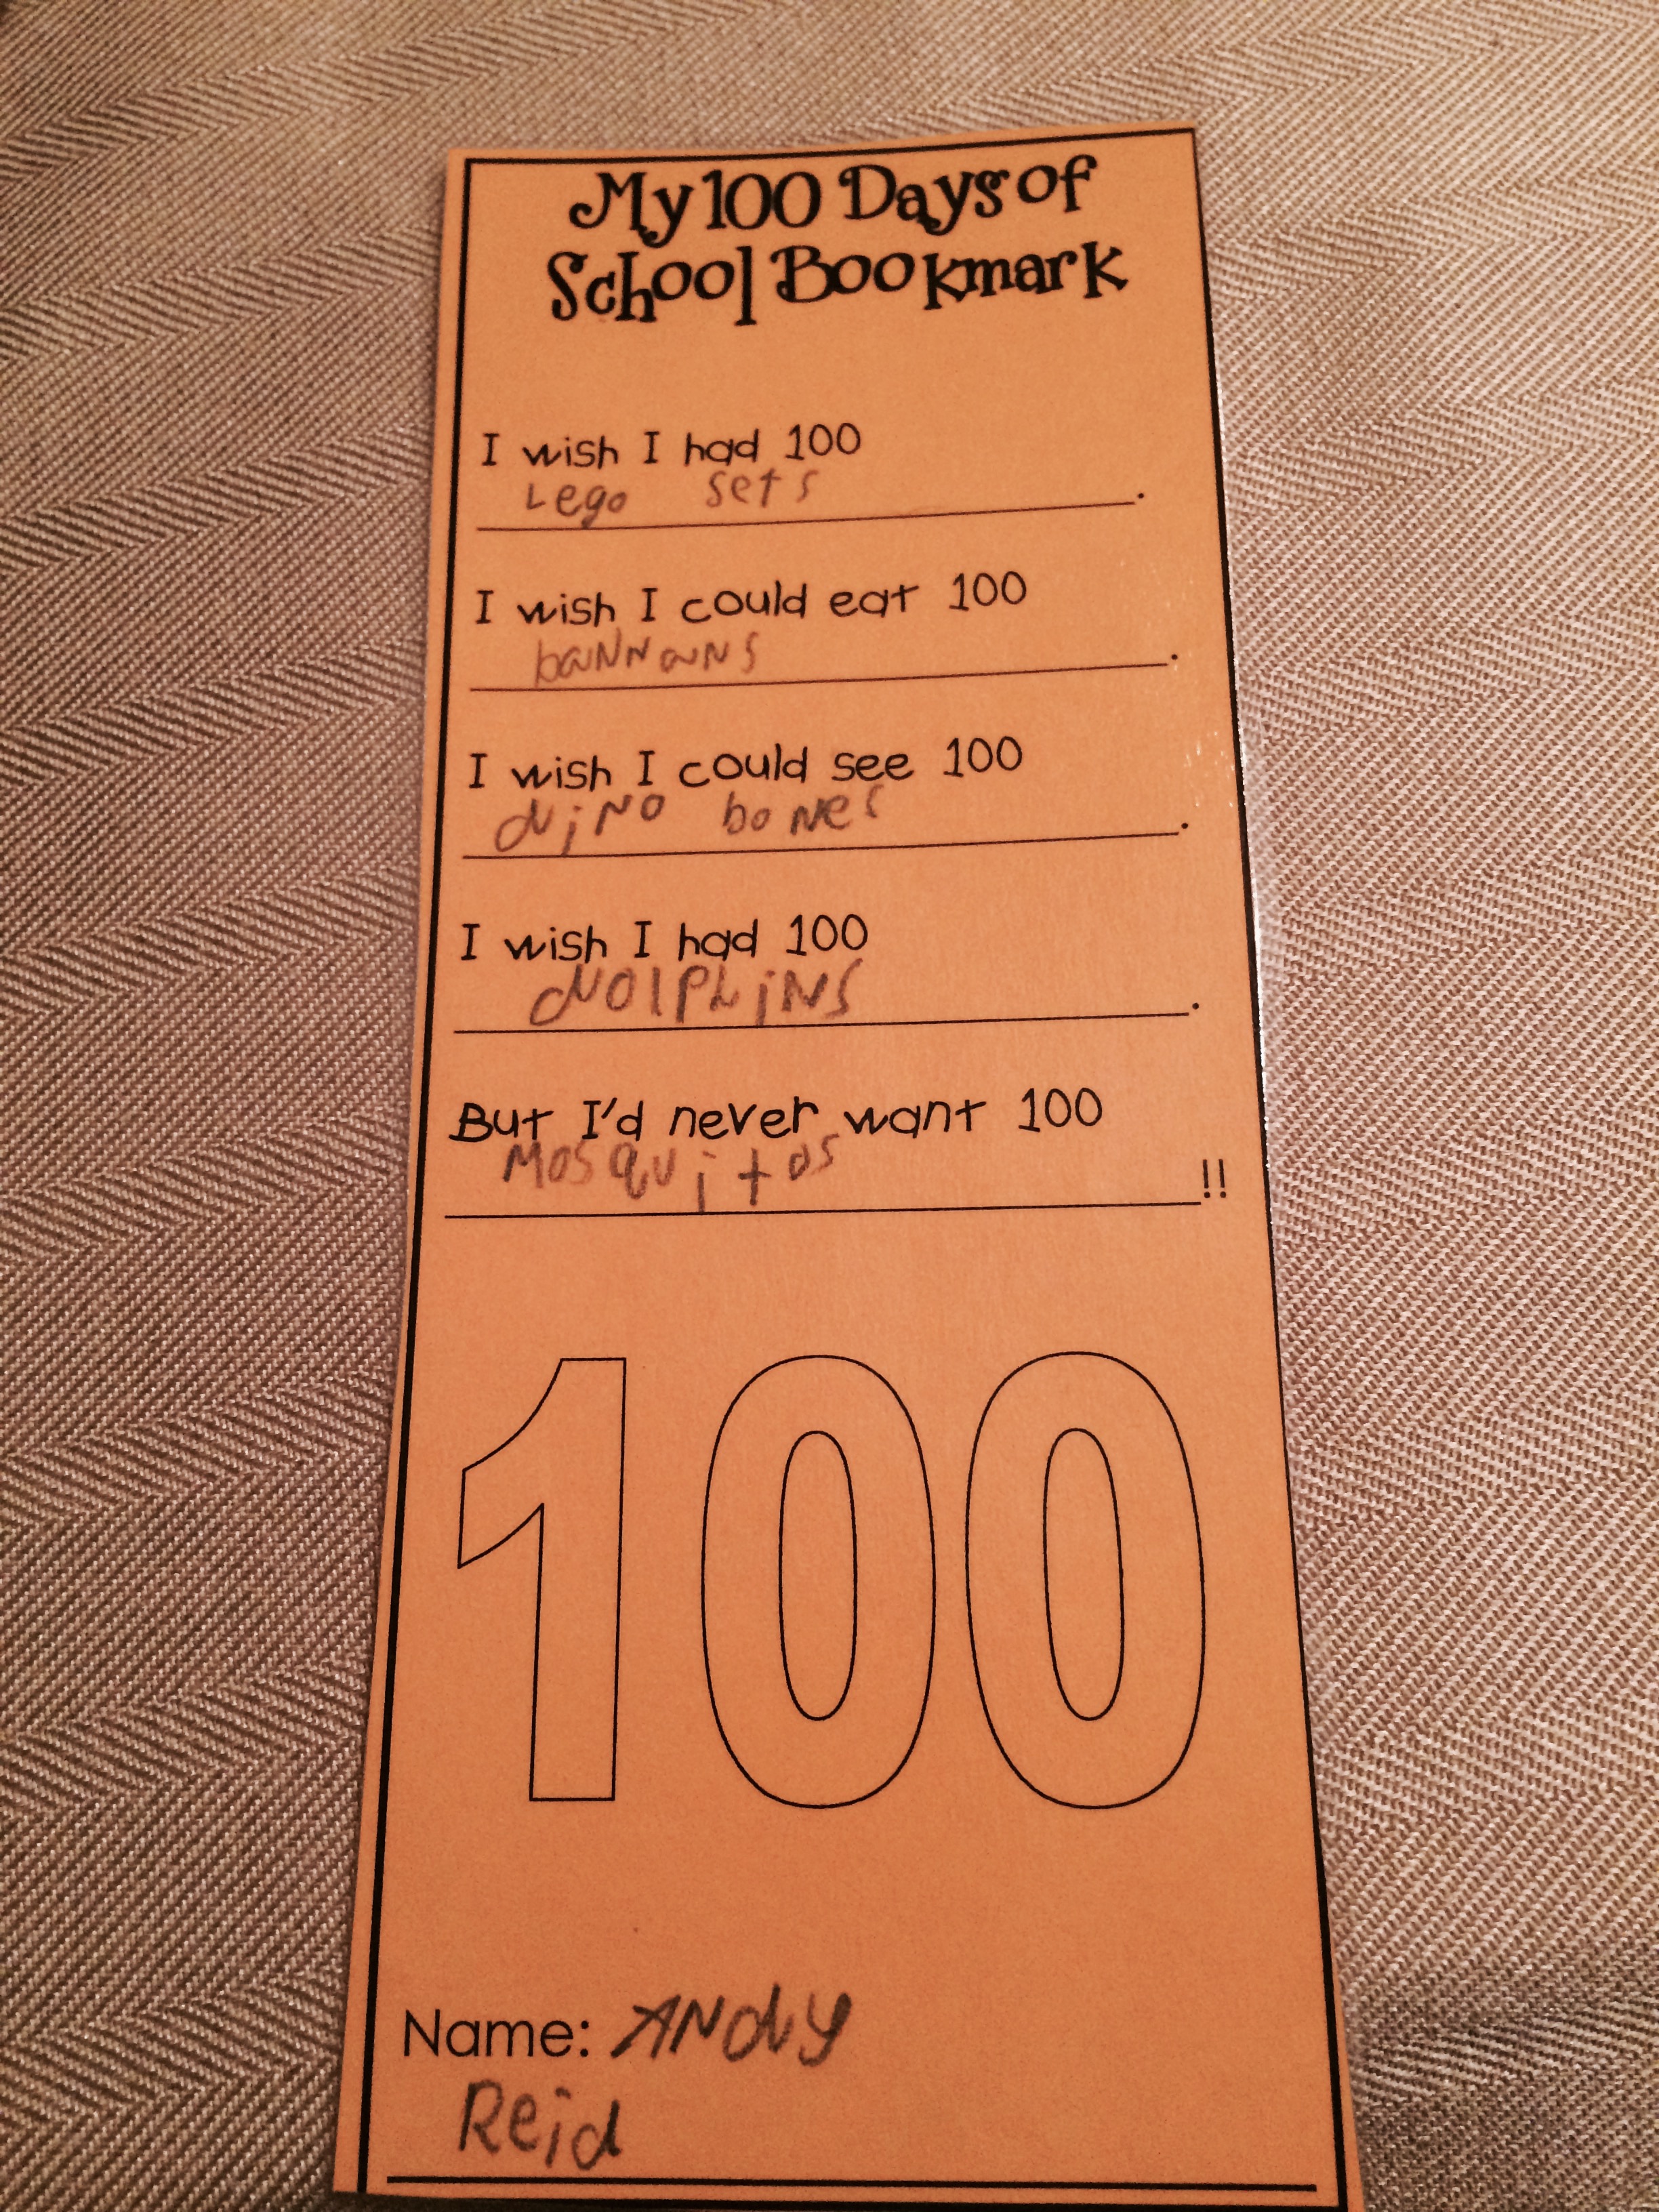 My 100 Days of
School Bookmark
I wish I had 100
Lego sets.
I wish I could eat 100
bannans.
I wish I could see 100
dino bones.
I wish I had 100
dolphins.
But I'd never want 100
Mosquitos!!
100
Name: Andy
Reid